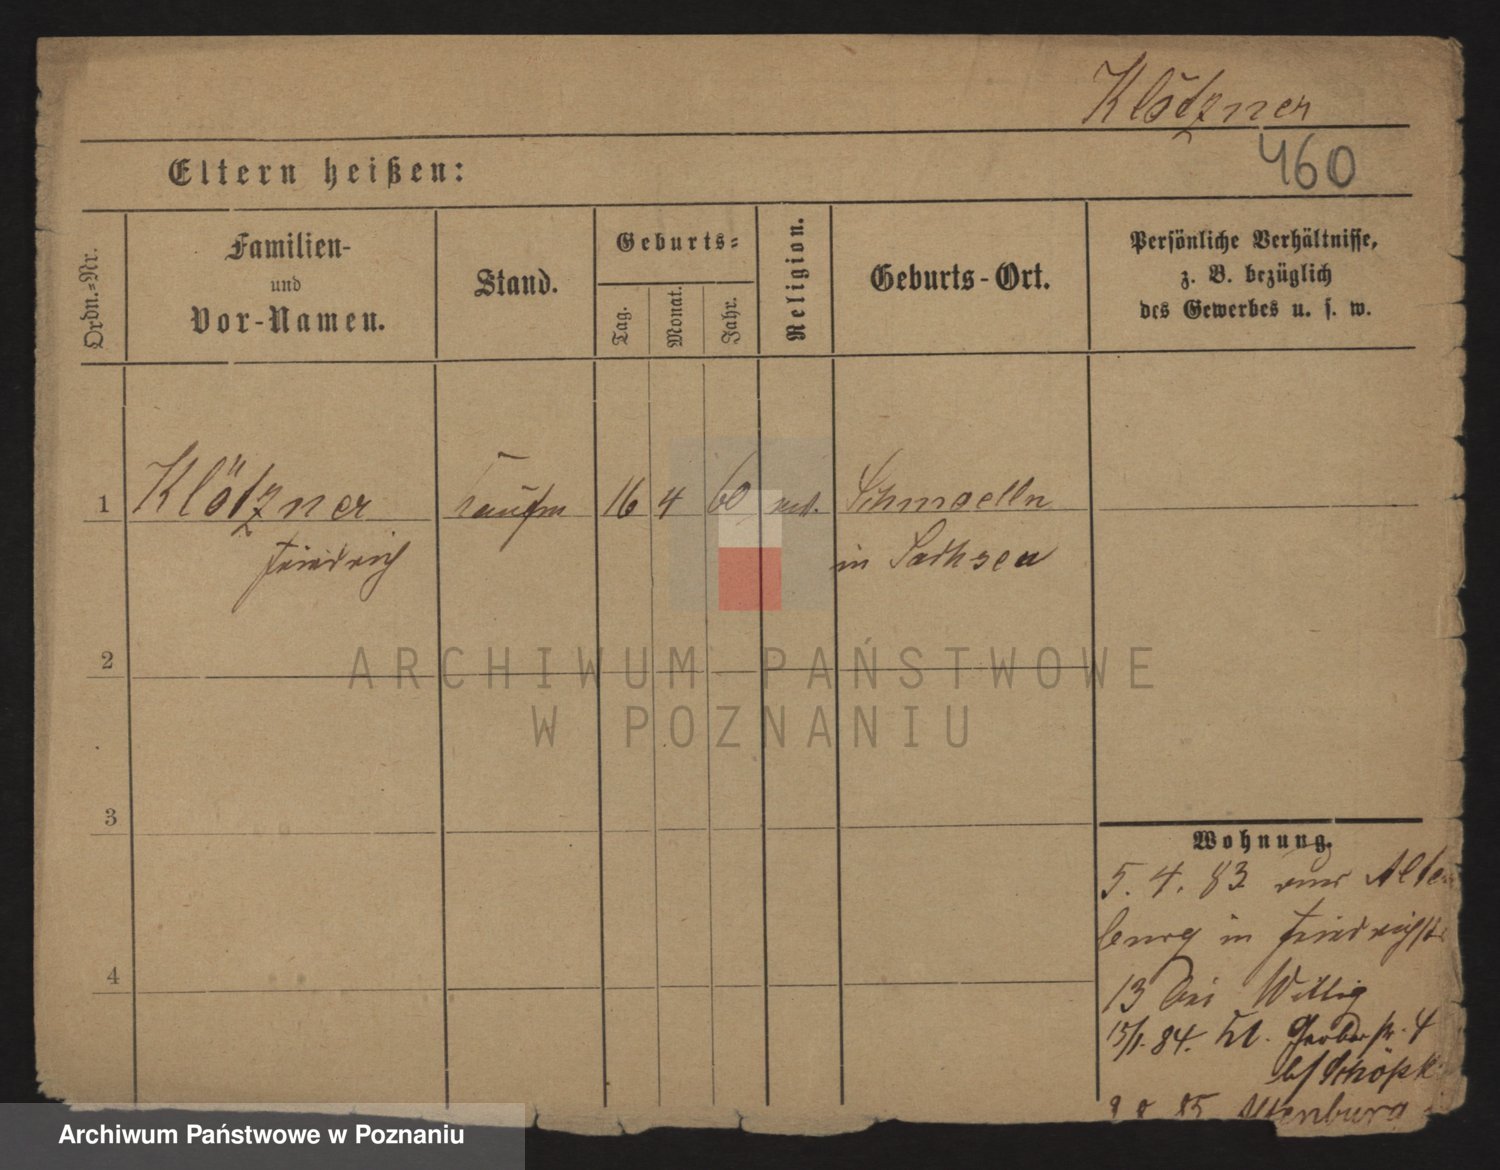 Klötzner
460
Eltern heißen:
Ordn.-Nr.
Familien-
und
Vor-Namen.
Stand.
Geburts-
Tag.
Monat.
Jahr.
Religion.
Geburts-Ort.
Persönliche Verhältnisse,
z. B. bezüglich
des Gewerbes u. s. w.
1 Klötzner Kaufm 16 4 60 Schmoelln
Friedrich in Sachsen
2
ARCHIWUM PAŃSTWOWE
W POZNANIU
3
Wohnung.
5. 4. 83 aus Alten
burg in Friedrichst
13 bei Willig
15/1. 84. Kl. Gerberstr. 4
85 Altenburg
4
Archiwum Państwowe w Poznaniu